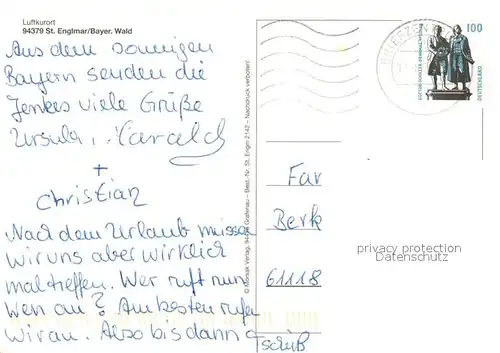 Luftkurort
94379 St. Englmar/Bayer. Wald
Aus dem sonnigen
Bayern senden die
Jenkes viele Grüße
Ursula, Harald
+
Christian
Nach dem Urlaub müssen
wir uns aber wirklich
mal treffen. Wer ruft nun
wen an? Am besten rufen
wir an. Also bis dann
Tschüß
© Morsak Verlag, 94481 Grafenau – Best.-Nr. St. Englm 2142 – Nachdruck verboten!
BRIEFZEN
GOETHE-SCHILLER-DENKMAL
100
DEUTSCHLAND
Far
Berk
61118
privacy protection
Datenschutz